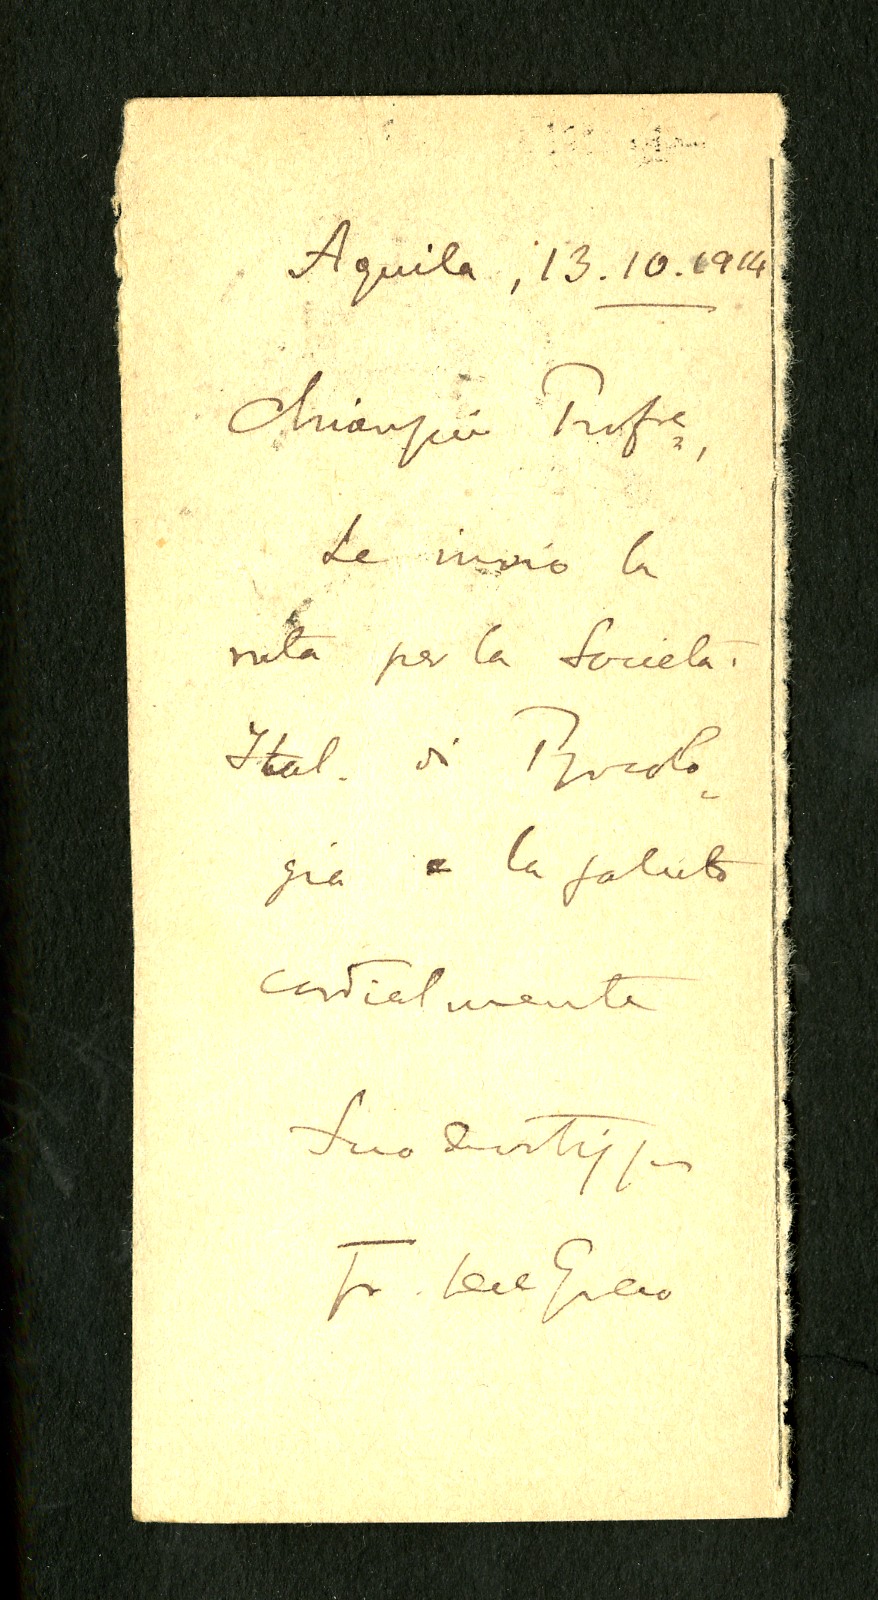 Aquila, 13.10.1914
Chiarmo Profre,
Le invio la
nota per la Società
Ital. di Psicolo-
gia e la saluto
cordialmente
Suo devotissmo
Fr. del Greco